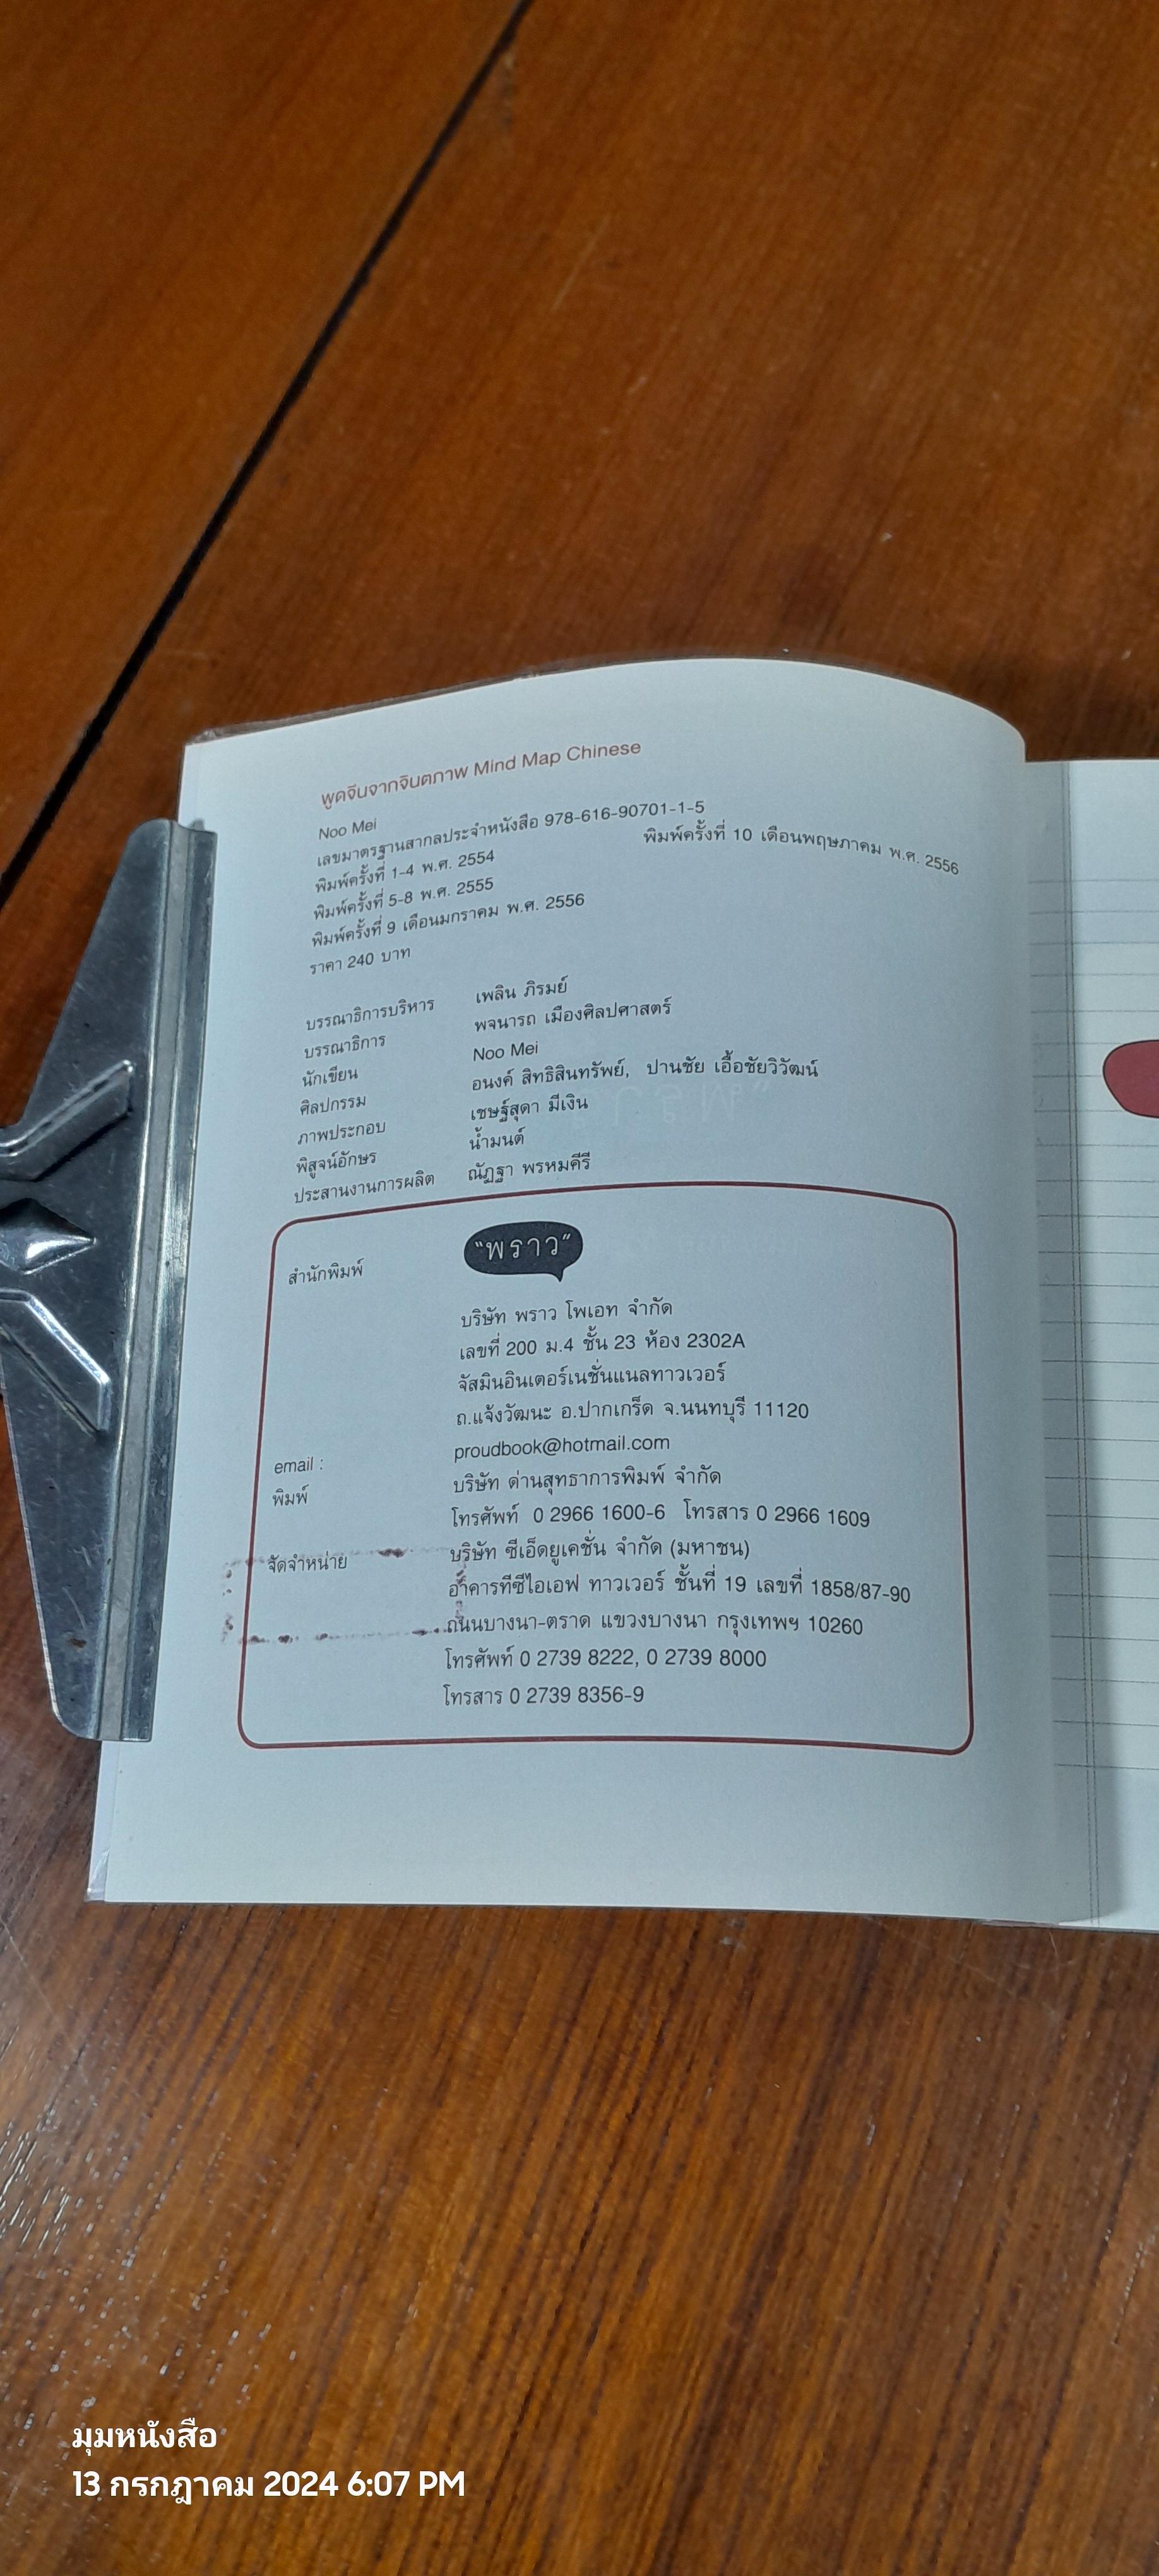 พูดจีนจากจินตภาพ Mind Map Chinese
Noo Mei
เลขมาตรฐานสากลประจำหนังสือ 978-616-90701-1-5
พิมพ์ครั้งที่ 1-4 พ.ศ. 2554 พิมพ์ครั้งที่ 10 เดือนพฤษภาคม พ.ศ. 2556
พิมพ์ครั้งที่ 5-8 พ.ศ. 2555
พิมพ์ครั้งที่ 9 เดือนมกราคม พ.ศ. 2556
ราคา 240 บาท
บรรณาธิการบริหาร เพลิน ภิรมย์
บรรณาธิการ พจนารถ เมืองศิลปศาสตร์
นักเขียน Noo Mei
ศิลปกรรม อนงค์ สิทธิสินทรัพย์, ปานชัย เอื้อชัยวิวัฒน์
ภาพประกอบ เชษฐ์สุดา มีเงิน
พิสูจน์อักษร น้ำมนต์
ประสานงานการผลิต ณัฏฐา พรหมคีรี
สำนักพิมพ์ "พราว"
บริษัท พราว โพเอท จำกัด
เลขที่ 200 ม.4 ชั้น 23 ห้อง 2302A
จัสมินอินเตอร์เนชั่นแนลทาวเวอร์
ถ.แจ้งวัฒนะ อ.ปากเกร็ด จ.นนทบุรี 11120
email : proudbook@hotmail.com
พิมพ์ บริษัท ด่านสุทธาการพิมพ์ จำกัด
โทรศัพท์ 0 2966 1600-6 โทรสาร 0 2966 1609
จัดจำหน่าย บริษัท ซีเอ็ดยูเคชั่น จำกัด (มหาชน)
อาคารทีซีไอเอฟ ทาวเวอร์ ชั้นที่ 19 เลขที่ 1858/87-90
ถนนบางนา-ตราด แขวงบางนา กรุงเทพฯ 10260
โทรศัพท์ 0 2739 8222, 0 2739 8000
โทรสาร 0 2739 8356-9
มุมหนังสือ
13 กรกฎาคม 2024 6:07 PM